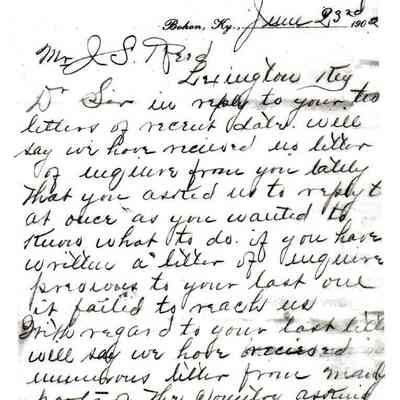 Bohon, Ky., June 23rd 1900
Mr J. S. Reed
Lexington Ky
Dr Sir in reply to your two
letters of recent date. will
say we have recieved no letter
of inquire from you lately
that you asked us to reply to
at once as you wanted to
know what to do. if you have
written a letter of inquire
previous to your last one
it failed to reach us
With regard to your last letter
will say we have recieved
numerous letter from many
parts of the Country asking